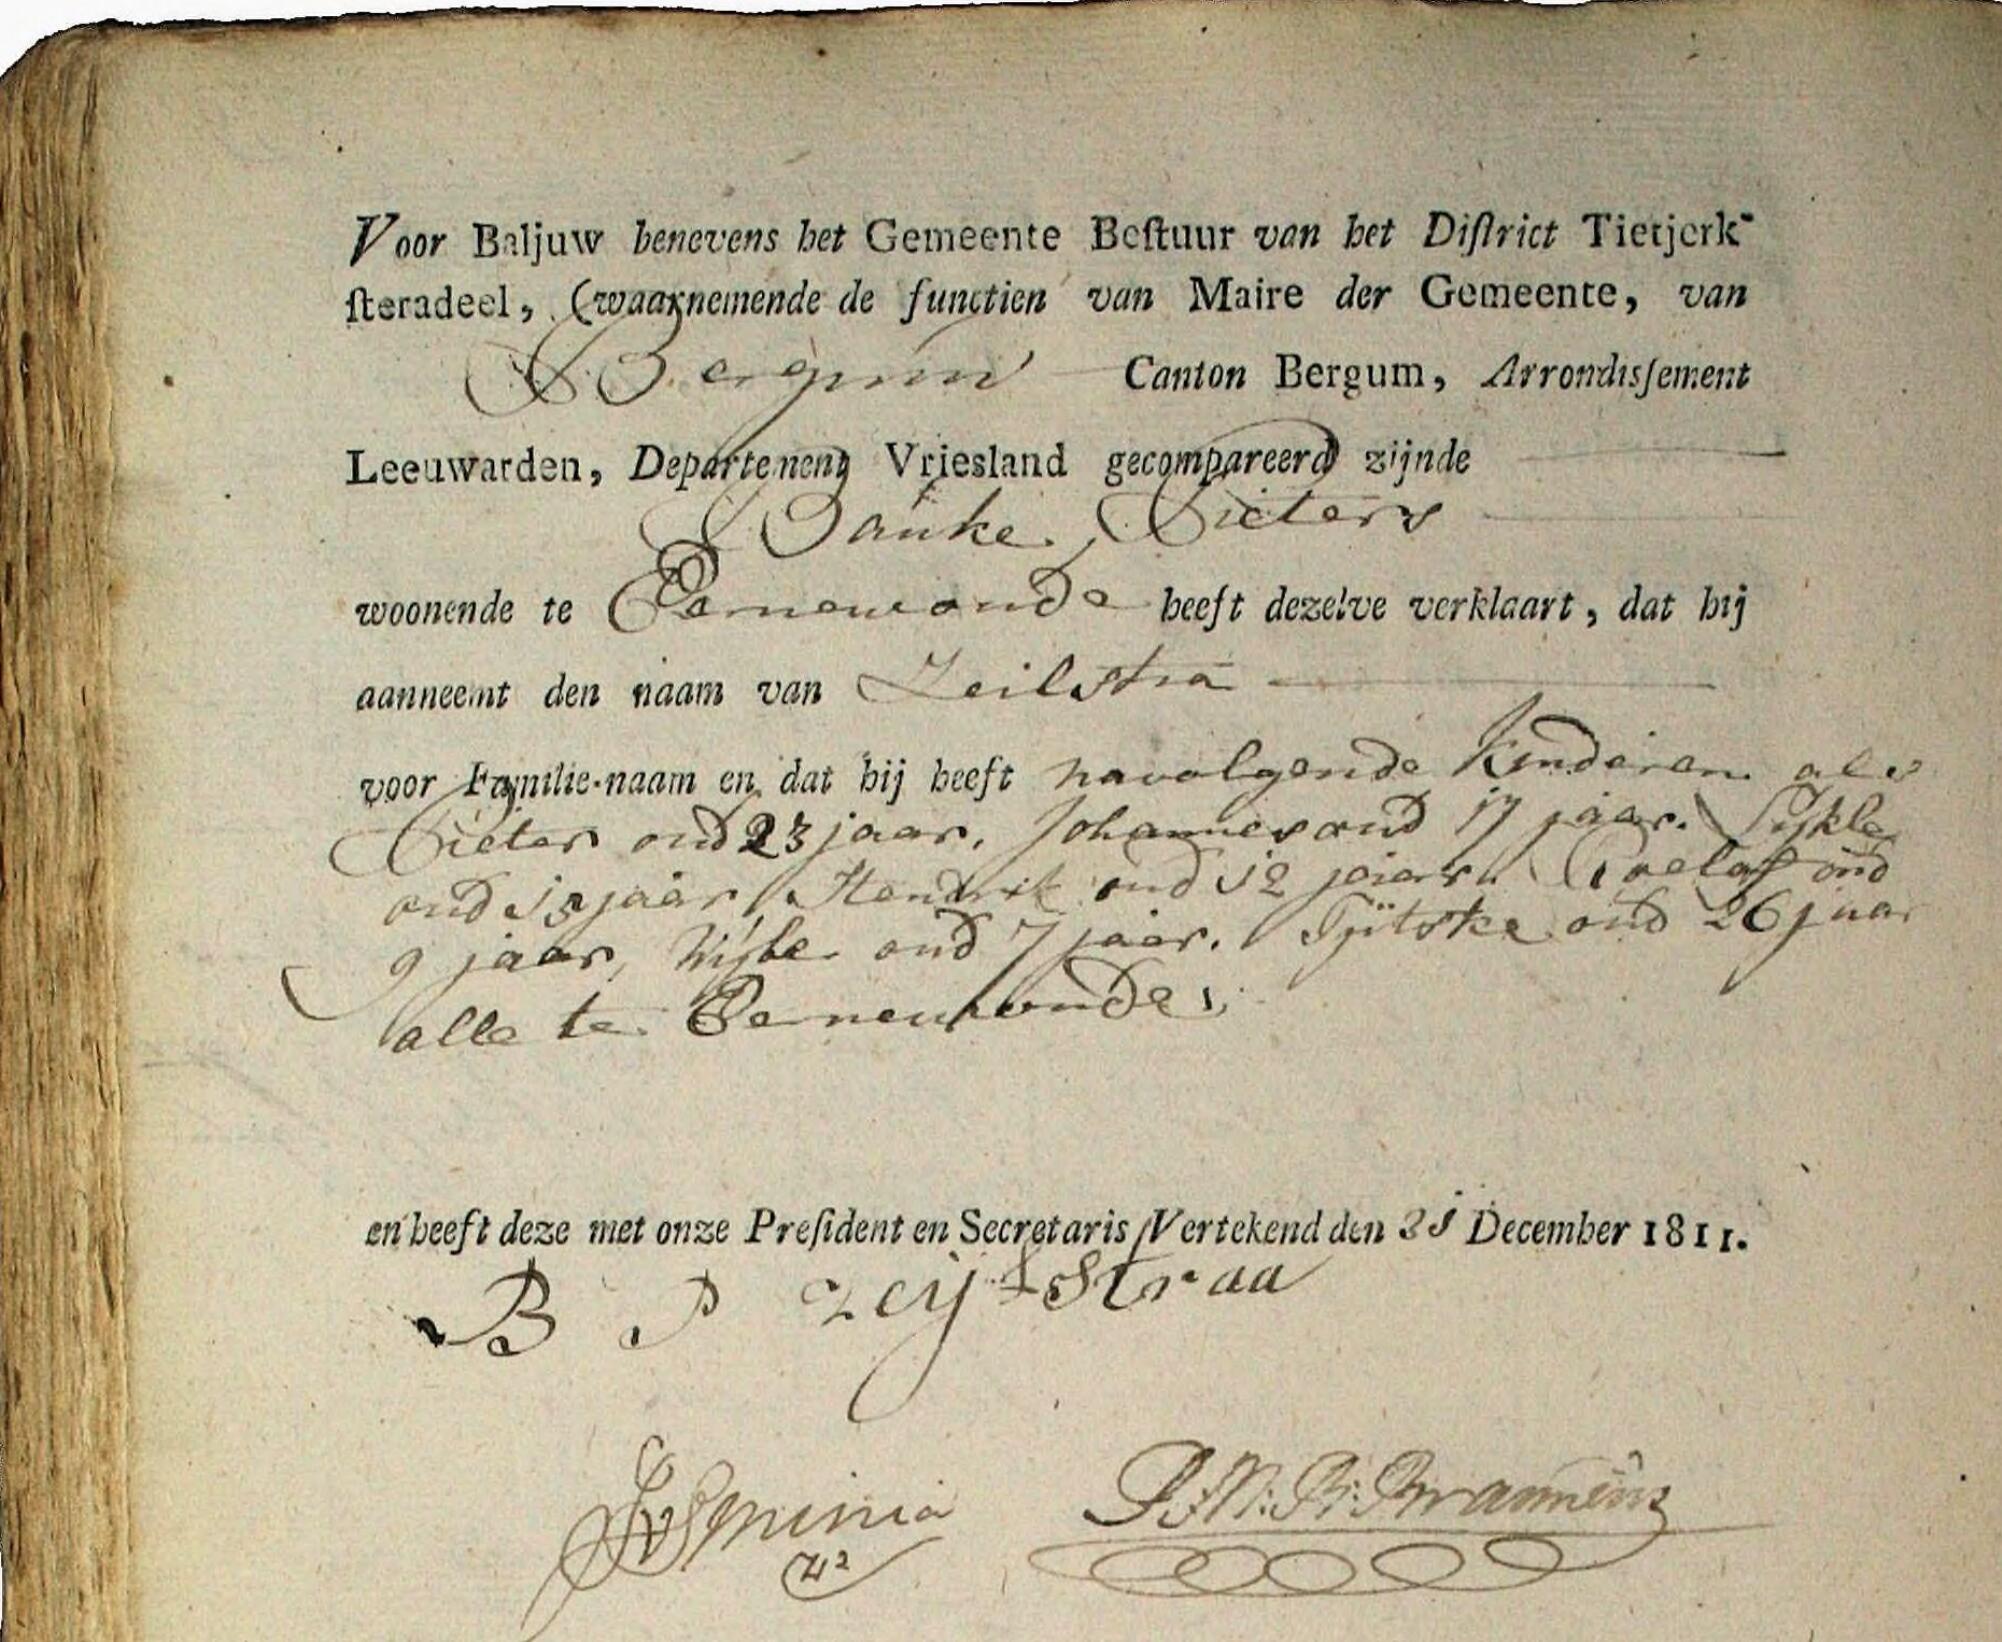 Voor Baljuw benevens het Gemeente Beſtuur van het Diſtrict Tietjerk-
ſteradeel, (waarnemende de functien van Maire der Gemeente, van
Bergum Canton Bergum, Arrondisſement
Leeuwarden, Departement Vriesland gecompareerd zijnde
Bauke Pieters
woonende te Eernewoude heeft dezelve verklaart, dat hij
aanneemt den naam van Zeilstra
voor Familie-naam en dat hij heeft navolgende Kinderen als
Pieter oud 23 jaar, Johannes oud 17 jaar. Sijkle
oud 15 jaar, Hendrik oud 12 jaar. Roelof oud
9 jaar, Wijbe oud 7 jaar. Tjitske oud 26 jaar
alle te Eernewoude,
en heeft deze met onze Preſident en Secretaris Vertekend den 31 December 1811.
B P zeijlstraa